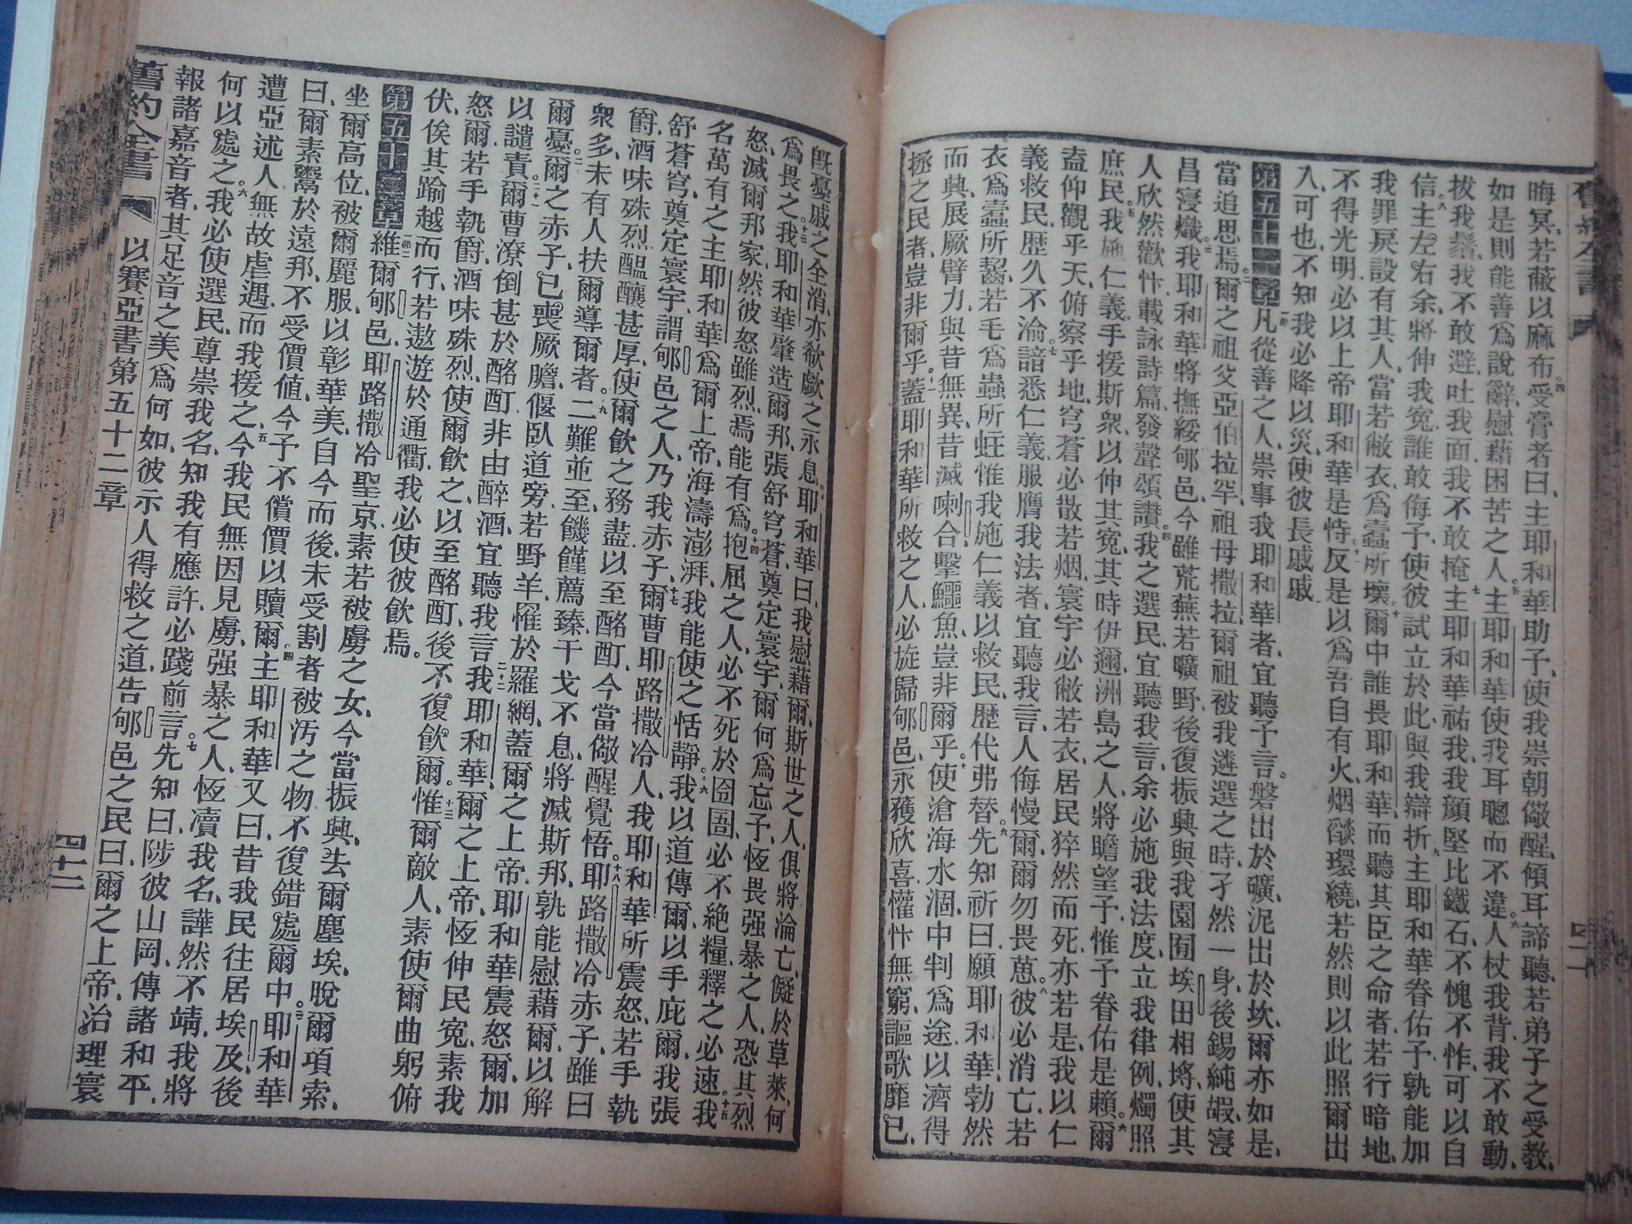 舊約全書
晦冥、若蔽以麻布。四受膏者曰、主耶和華助予、使我崇朝儆醒、傾耳諦聽、若弟子之受教、
如是則能善爲說辭、慰藉困苦之人。五主耶和華使我耳聰而不違。六人杖我背、我不敢動、
拔我鬚、我不敢避、吐我面、我不敢掩、七主耶和華祐我、我顔堅比鐵石、不愧不怍、可以自
信。八主左右余、將伸我寃、誰敢侮予、使彼試立於此、與我辯折、九主耶和華眷佑予、孰能加
我罪戾、設有其人、當若敝衣、爲蠹所壞。十爾中誰畏耶和華、而聽其臣之命者、若行暗地、
不得光明、必以上帝耶和華是恃、十一反是以爲吾自有火烟燄環繞、若然則以此照爾出
入、可也、不知我必降以災、使彼長戚戚
第五十一章一節凡從善之人、崇事我耶和華者、宜聽予言。磐出於礦、泥出於坎、爾亦如是、
當追思焉。二爾之祖父亞伯拉罕、祖母撒拉、爾祖被我遴選之時、孑然一身、後錫純嘏、寖
昌寖熾。三我耶和華將撫綏郇邑、今雖荒蕪若曠野、後復振興、與我園囿埃田相埒、使其
人欣然歡忭、載詠詩篇、發聲頌讚。四我之選民、宜聽我言、余必施我法度、立我律例、燭照
庶民。五我施仁義、手援斯衆、以伸其寃、其時伊邇、洲島之人、將瞻望予、惟予眷佑是賴。六爾
盍仰觀乎天、俯察乎地、穹蒼必散若烟、寰宇必敝若衣、居民猝然而死、亦若是、我以仁
義救民、歷久不淪。七諳悉仁義、服膺我法者、宜聽我言、人侮慢爾、爾勿畏葸。八彼必消亡、若
衣爲蠹所齧、若毛爲蟲所蛀、惟我施仁義以救民、歷代弗替。九先知祈曰、願耶和華勃然
而興、展厥臂力、與昔無異、昔滅喇合、擊鱷魚、豈非爾乎。十使滄海水涸、中判爲途、以濟得
拯之民者、豈非爾乎。十一蓋耶和華所救之人、必旋歸郇邑、永獲欣喜懽忭無窮、謳歌靡已、
四十一
旣憂戚之全消、亦欷歔之永息。十二耶和華曰、我慰藉爾、斯世之人、俱將淪亡、儗於草萊、何
爲畏之、十三我耶和華肇造爾邦、張舒穹蒼、奠定寰宇、爾何爲忘予、恆畏强暴之人、恐其烈
怒、滅爾邦家、然彼怒雖烈、焉能有爲、十四抱屈之人、必不死於囹圄、必不絶糧、釋之必速、十五我
名萬有之主耶和華、爲爾上帝、海濤澎湃、我能使之恬靜。十六我以道傳爾、以手庇爾、我張
舒蒼穹、奠定寰宇、謂郇邑之人、乃我赤子、十七爾曹耶路撒冷人、我耶和華所震怒、若手執
爵、酒味殊烈、醖釀甚厚、使爾飲之務盡、以至酩酊、今當儆醒覺悟。十八耶路撒冷赤子雖曰
衆多、未有人扶爾導爾者。十九二難並至、饑饉薦臻、干戈不息、將滅斯邦、孰能慰藉爾、以解
爾憂。二十爾之赤子、已喪厥膽、偃臥道旁、若野羊罹於羅網、蓋爾之上帝耶和華震怒爾、加
以譴責。二十一爾曹潦倒甚於酩酊、非由醉酒、宜聽我言、二十二我耶和華、爾之上帝、恆伸民寃、素我
怒爾、若手執爵、酒味殊烈、使爾飲之、以至酩酊、後不復飲爾。二十三惟爾敵人、素使爾曲躬俯
伏、俟其踰越而行、若遨遊於通衢、我必使彼飲焉。
第五十二章一節二維爾郇邑、耶路撒冷聖京、素若被虜之女、今當振興、去爾塵埃、脫爾項索、
坐爾高位、被爾麗服、以彰華美、自今而後、未受割者、被汚之物、不復錯處爾中、三耶和華
曰、爾素鬻於遠邦、不受價値、今予不償價以贖爾。四主耶和華又曰、昔我民往居埃及、後
遭亞述人無故虐遇、而我援之、五今我民無因見虜、强暴之人、恆瀆我名、譁然不靖、我將
何以處之。六我必使選民、尊崇我名、知我有應許、必踐前言。七先知曰、陟彼山岡、傳諸和平、
報諸嘉音者、其足音之美爲何如、彼示人得救之道、告郇邑之民曰、爾之上帝、治理寰
舊約全書 以賽亞書第五十二章 四十二